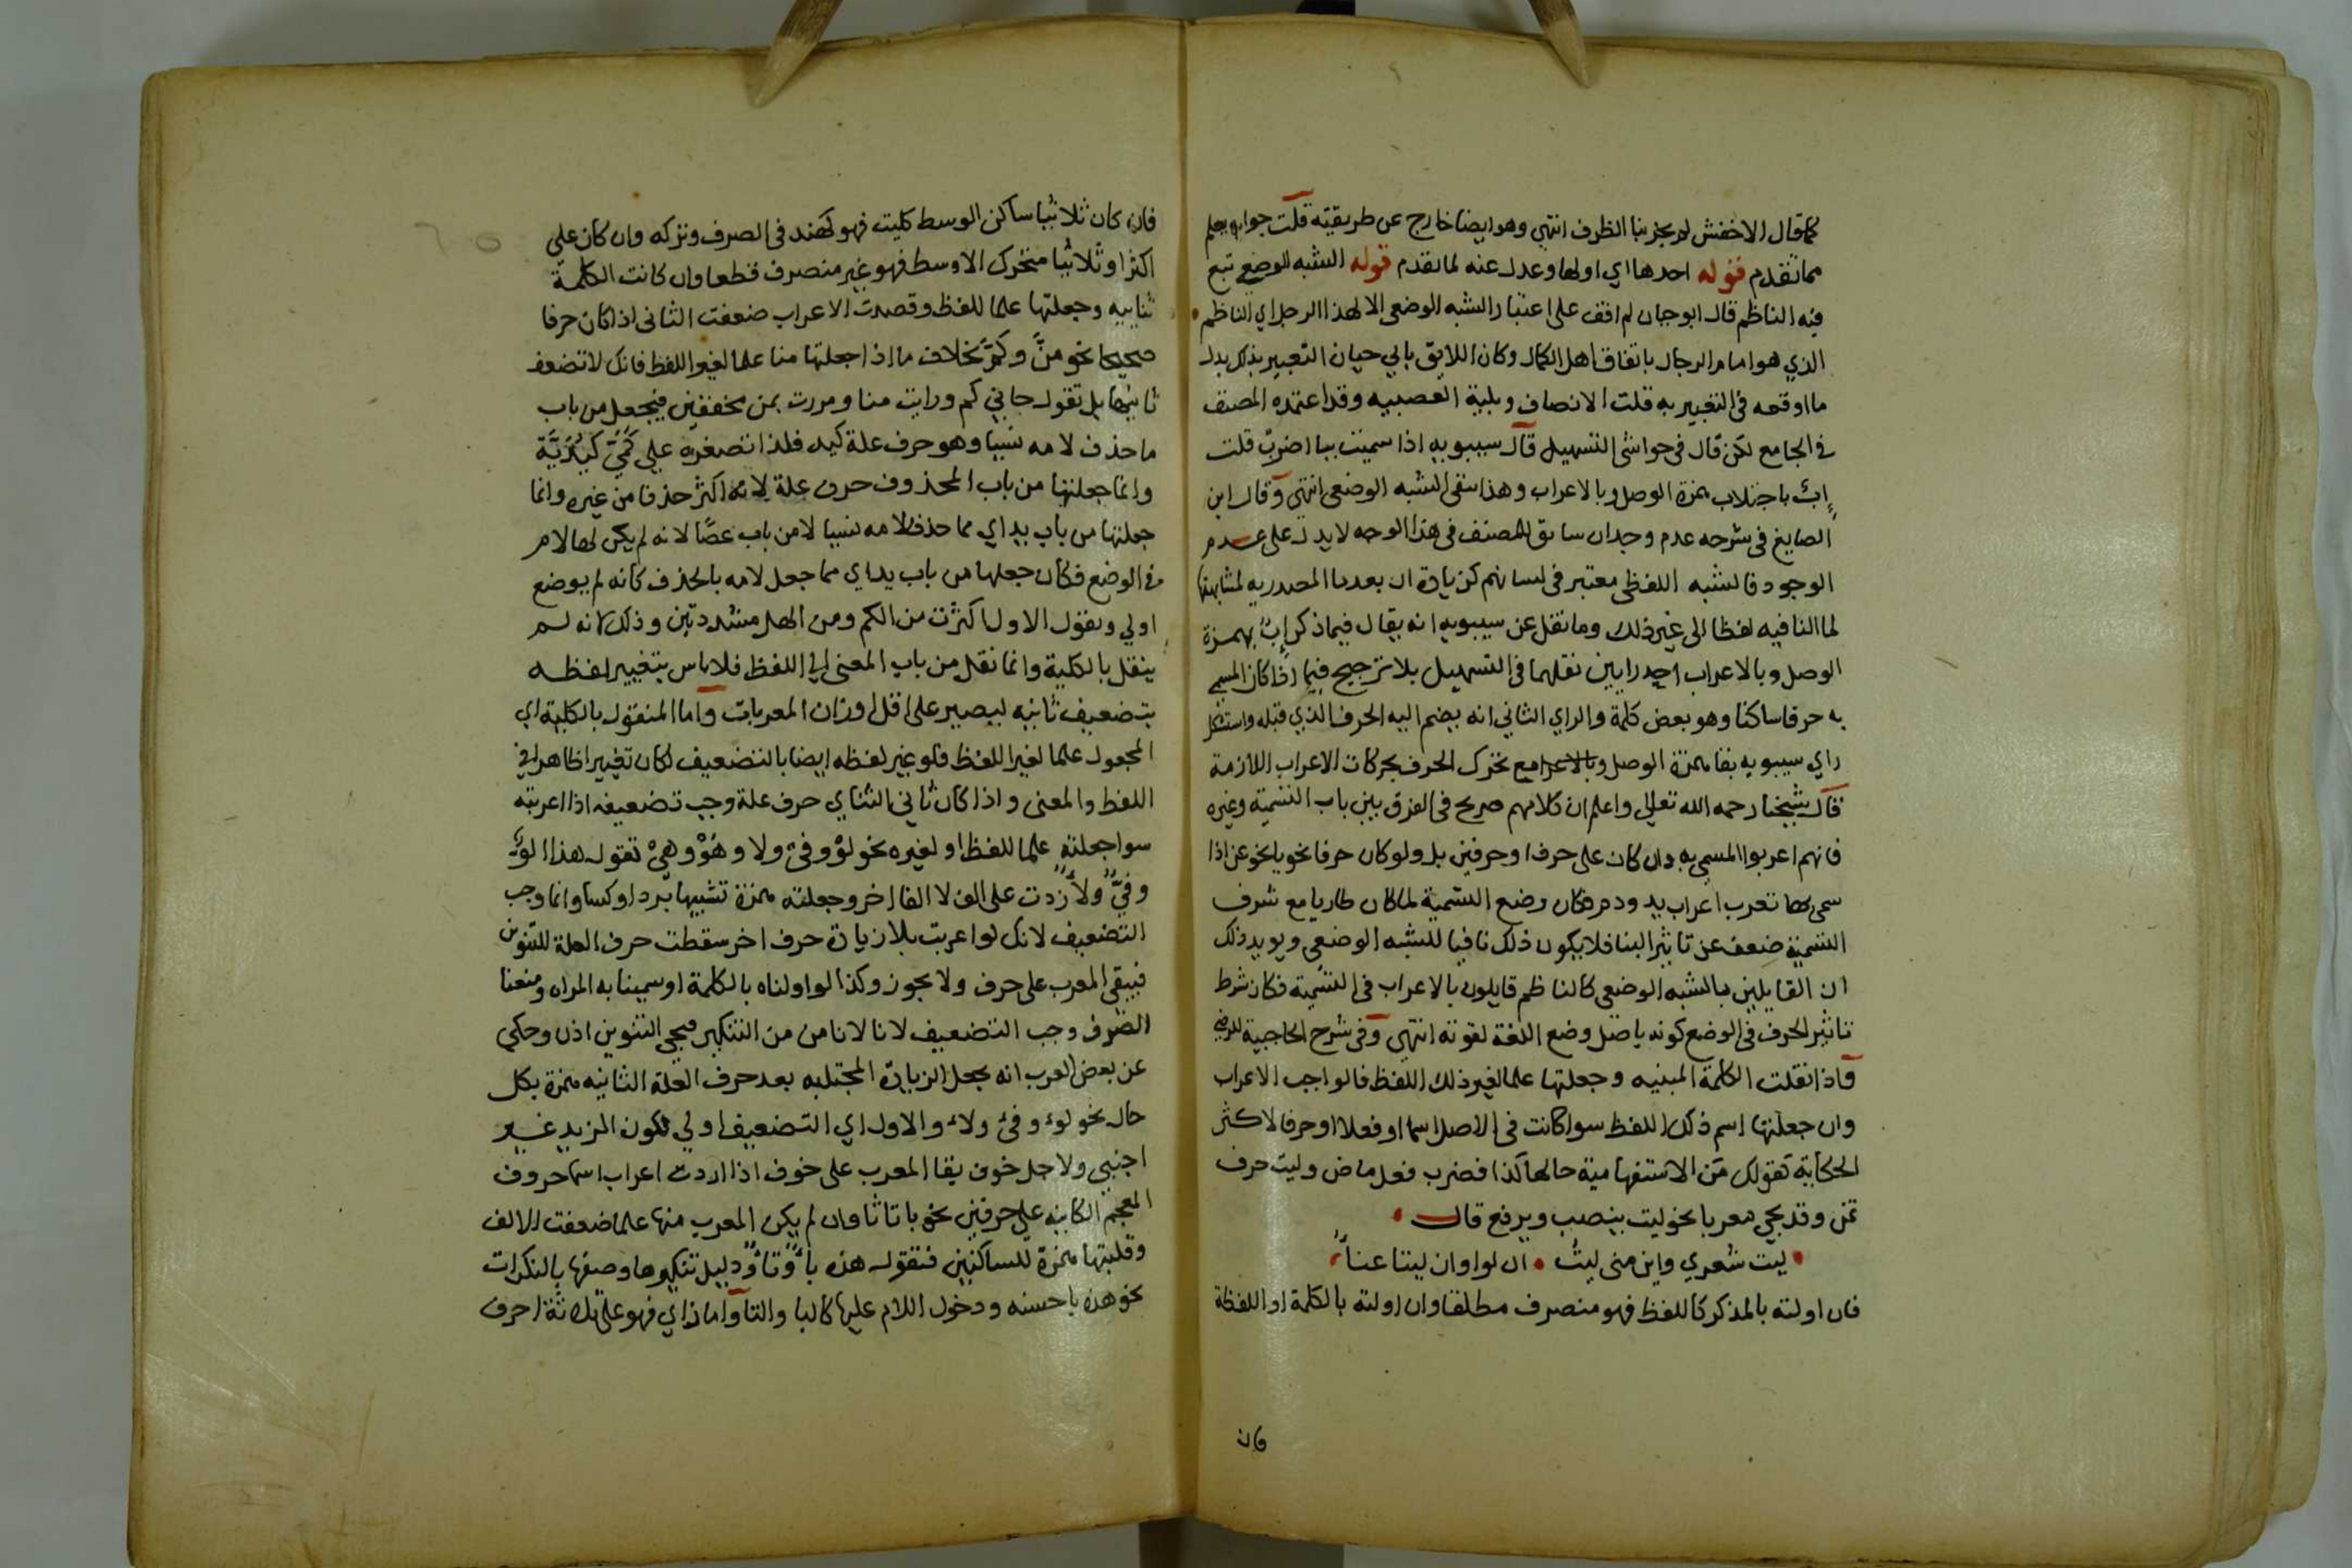 كما قال الاخفش لم يجز بنا الظرف انتهى وهو ايضا خارج عن طريقته قلت جوابه يعلم
مما تقدم قوله احدها اي اولها وعدل عنه لما تقدم قوله الشبه الوضعي تبع
فيه الناظم قال ابو حيان لم اقف على اعتبار الشبه الوضعي الا لهذا الرجل اي الناظم
الذي هو امام الرجال باتفاق اهل الكمال وكان اللايق بابي حيان التعبير بذلك بدل
ما اوقعه في التعبير به قلت الانصاف وبلية العصبيه وقد اعتمده المصنف
في الجامع لكن قال في حواشي التسهيل قال سيبويه اذا سميت ببا اضرب قلت
إبٌ باجتلاب همزة الوصل وبالاعراب وهذا ينفي الشبه الوضعي انتهى وقال ابن
الصايغ في شرحه عدم وجدان سابق للمصنف في هذا الوجه لا يدل على عدم
الوجود فالشبه اللفظي معتبر في لسانهم كزيادة ان بعد ما المصدريه لمشابهتها
لما النافيه لفظا الى غير ذلك وما نقل عن سيبويه انه يقال فيما ذكر إبٌ بهمزة
الوصل وبالاعراب احد رايين نقلهما في التسهيل بلا ترجيح فيما اذا كان المسمى
به حرفا ساكنا وهو بعض كلمة والراي الثاني انه يضم اليه الحرف الذي قبله واستشكل
راي سيبويه بقا همزة الوصل مع تحرك الحرف بحركات الاعراب اللازمة
قال شيخنا رحمه الله تعالى واعلم ان كلامهم صريح في الفرق بين باب التسمية وغيره
فانهم اعربوا المسمى به وان كان على حرف او حرفين بل ولو كان حرفا نحو يا نحو عن اذا
سمي بها تعرب اعراب يد ودم فكان وضع التسمية لما كان طاريا مع شرف
التسمية ضعف عن تاثير البنا فلا يكون ذلك نافيا للشبه الوضعي ويويد ذلك
ان القايلين بالشبه الوضعي كالناظم قايلون بالاعراب في التسمية فكان شرط
تاثير الحرف في الوضع كونه باصل وضع اللغة لقوته انتهى وفي شرح الحاجبية للرضي
واذا نقلت الكلمة المبنيه وجعلتها علما لغير ذلك اللفظ فالواجب الاعراب
وان جعلتها اسم ذلك اللفظ سوا كانت في الاصل اسما او فعلا او حرفا لاكثر
الحكاية تقولك من الاستفهامية حالها كذا فضرب فعل ماض وليت حرف
تمن وقد يجي معربا نحو ليت ينصب ويرفع قال
ليت شعري واين مني ليتٌ • ان لوا وان ليتا عناءُ
فان اولته بالمذكر كاللفظ فهو منصرف مطلقا وان اولته بالكلمة او اللفظة
فان
فان كان ثلاثيا ساكن الوسط كليت فهو كهند في الصرف وتركه وان كان على
اكثر او ثلاثيا متحرك الاوسط فهو غير منصرف قطعا وان كانت الكلمة
ثنايية وجعلتها علما للفظ وقصدت الاعراب ضعفت الثاني اذا كان حرفا
صحيحا نحو منّ وكمّ بخلاف ما اذا جعلتها منا علما لغير اللفظ فانك لا تضعف
ثانيها بل تقول جاني كم ورايت منا ومررت بمن مخففين فيجعل من باب
ما حذف لامه نسيا وهو حرف علة كيد فلذا تصغره على كُمَيّ كيُدَيَّة
وانما جعلتها من باب المحذوف حرف علة لانه اكثر حذفا من غيره وانما
جعلتها من باب يد اي مما حذف لامه نسيا لا من باب عصًا لانه لم يكن لها لام
في الوضع فكان جعلها من باب يد اي مما جعل لامه بالحذف كانه لم يوضع
اولي وتقول الاول اكثرت من الكم ومن الهل مشددتين وذلك لانه لم
ينقل بالكلية وانما نقل من باب المعنى الى اللفظ فلا باس بتغيير لفظه
بتضعيف ثانيه ليصير على اقل اوزان المعربات واما المنقول بالكلية اي
المجعول علما لغير اللفظ فلو غير لفظه ايضا بالتضعيف لكان تغييرا ظاهرا في
اللفظ والمعنى واذا كان ثاني الثناي حرف علة وجب تضعيفه اذا اعربته
سوا جعلته علما للفظ او لغيره نحو لوّ وفيّ ولا وهوّ وهيّ تقول هذا لوٌّ
وفيٌّ ولاءٌ زدت على الف لا الفا اخر وجعلته همزة تشبيها برداء وكساء وانما وجب
التضعيف لانك لو اعربت بلا زيادة حرف اخر سقطت حرف العلة للتنوين
فيبقى المعرب على حرف ولا يجوز وكذا لو اولناه بالكلمة او سمينا به المراه ومنعنا
الصرف وجب التضعيف لانا لانامن من التنكير فيجي التنوين اذن وحكي
عن بعض العرب انه يجعل الزيادة المجتلبه بعد حرف العلة الثانيه همزة بكل
حال نحو لوء وفيء ولاء والاول اي التضعيف اولي لكون المزيد غير
اجنبي ولاجل خوف بقا المعرب على خوف اذا اردت اعراب اسما حروف
المعجم الكاينه على حرفين نحو با تا ثا وان لم يكن المعرب منها علما ضعفت الالف
وقلبتها همزة للساكنين فتقول هذه باءٌ وتاءٌ ودليل تنكيرها وصفها بالنكرات
نحو هذه با حسنه ودخول اللام عليها كالبا والتا واما زاي فهو على ثلاثة احرف